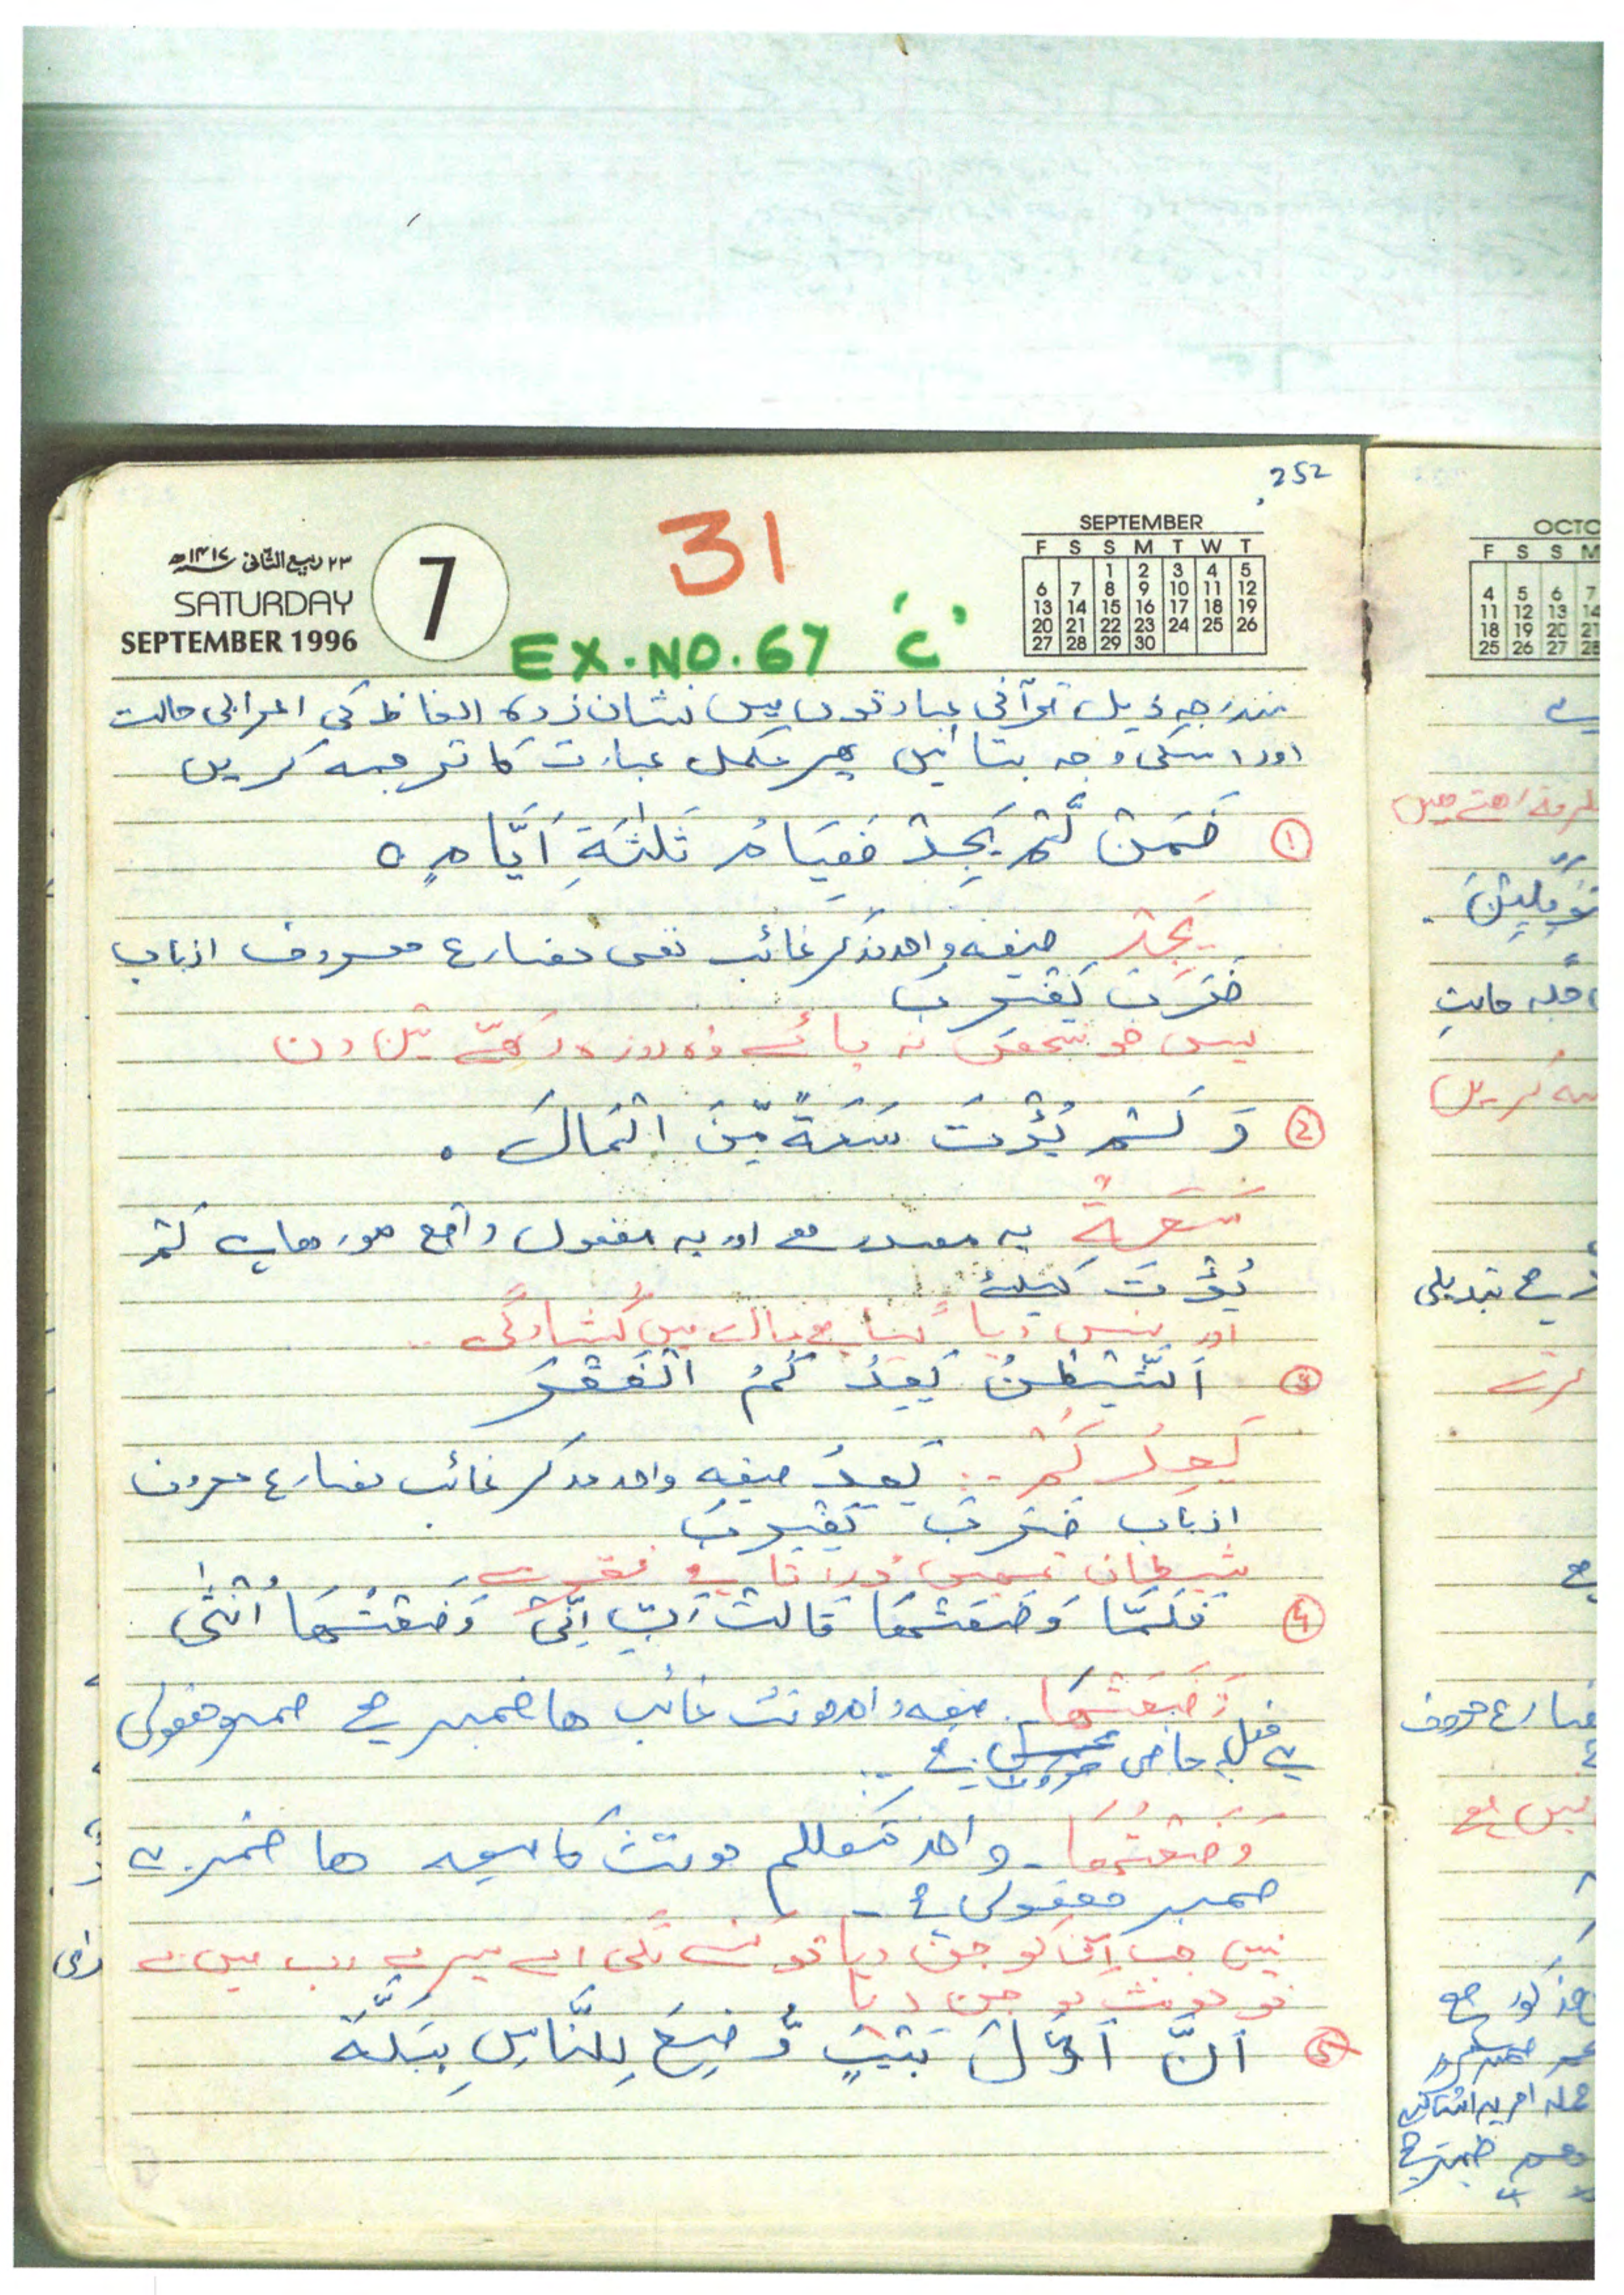 252
۲۳ ربیع الثانی ۱۴۱۷ھ
SATURDAY
SEPTEMBER 1996
7
31
EX.NO.67 'C'
SEPTEMBER
F S S M T W T
1 2 3 4 5
6 7 8 9 10 11 12
13 14 15 16 17 18 19
20 21 22 23 24 25 26
27 28 29 30
مندرجہ ذیل قرآنی عبارتوں میں نشان زدہ الفاظ کی اعرابی حالت
اور اسکی وجہ بتائیں پھر مکمل عبارت کا ترجمہ کریں
① فَمَنْ لَّمْ يَجِدْ فَصِيَامُ ثَلٰثَةِ اَيَّامٍ ○
يَجِدْ صیغہ واحد مذکر غائب نفی مضارع معروف ازباب
ضَرَبَ يَضْرِبُ
پس جو شخص نہ پائے وہ روزہ رکھے تین دن
② وَ لَمْ يُؤْتَ سَعَةً مِّنَ الْمَالِ ۔
سَعَةً یہ مصدر ہے اور یہ مفعول واقع ہورہا ہے لَمْ
يُؤْتَ کیلئے
اور نہیں دیا گیا ہے مال میں کشادگی ..
③ اَلشَّيْطٰنُ يَعِدُ كُمُ الْفَقْرَ
يَعِدُ كُمْ .. يَعِدُ صیغہ واحد مذکر غائب مضارع معروف
ازباب ضَرَبَ يَضْرِبُ
شیطان تمہیں ڈراتا ہے فقر سے
④ فَلَمَّا وَضَعَتْهَا قَالَتْ رَبِّ اِنِّیْ وَضَعْتُهَا اُنْثٰى
وَضَعَتْهَا . صیغہ واحد مونث غائب ھا ضمیر ہے ضمیر مفعولی
یہ فعل ماضی معروف ہے ..
وَضَعْتُهَا ۔ واحد متکلم مونث کا صیغہ ھا ضمیر یہ
ضمیر مفعولی ہے ۔
پس جب اس کو جن دیا تو کہنے لگی اے میرے رب میں نے
تو مونث کو جن دیا
⑤ اِنَّ اَوَّلَ بَيْتٍ وُّضِعَ لِلنَّاسِ بِبَكَّةَ
OCTO
F S S M
4 5 6 7
11 12 13 14
18 19 20 21
25 26 27 28
تبدیلی